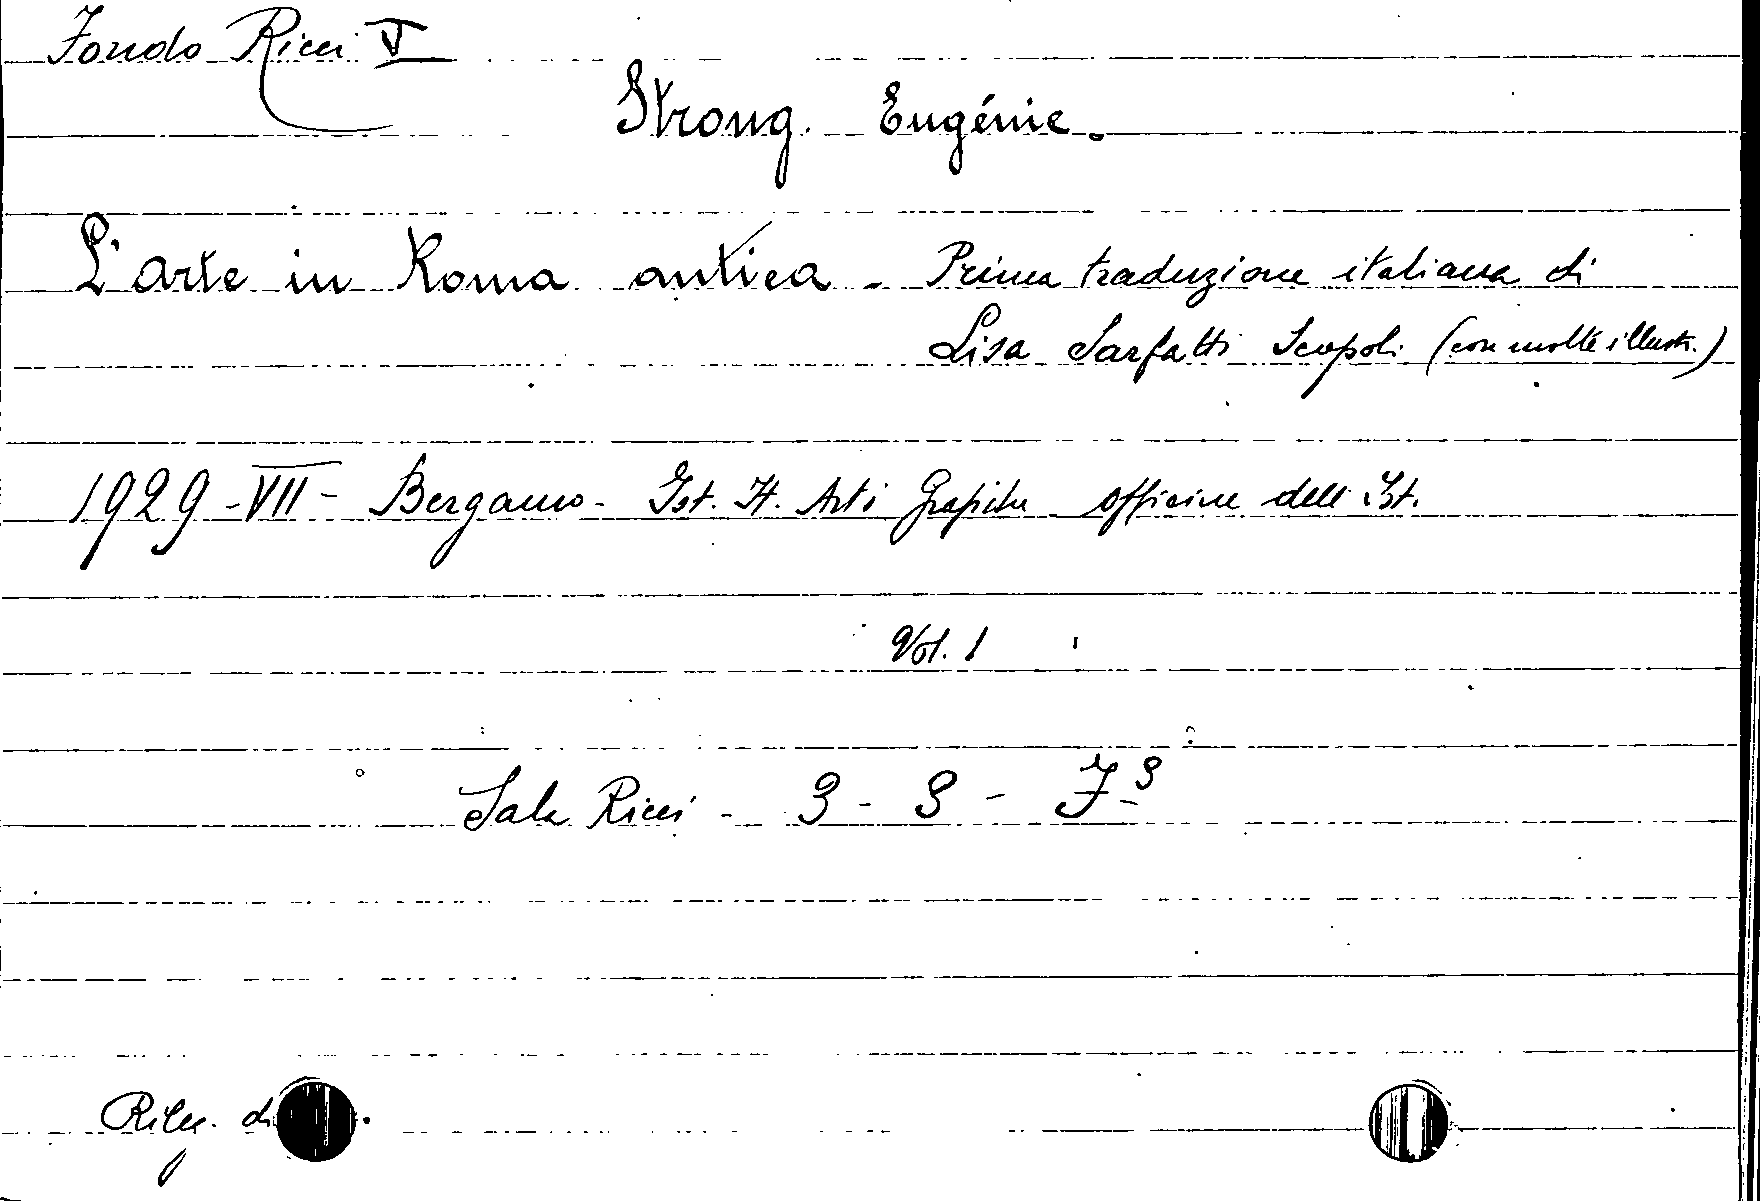 Fondo Ricci V
Strong. Eugénie.
L'arte in Roma antica - Prima traduzione italiana di
Lisa Sarfatti Scopoli (con molte illustr.)
1929 - VII - Bergamo - Ist. It. Arti Grafiche officine dell' Ist.
Vol. 1
Sala Ricci - 3 - 3 - F 3
Rileg. di